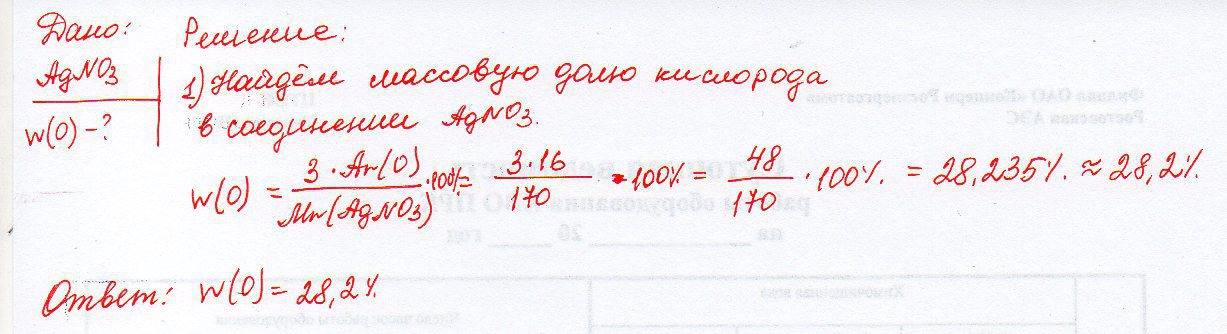 Дано: Решение:
AgNO3
w(O) - ?
1) Найдём массовую долю кислорода
в соединении AgNO3.
w(O) = 3 · Ar(O) / Mr(AgNO3) · 100% = 3 · 16 / 170 · 100% = 48 / 170 · 100% = 28,235% ≈ 28,2%
Ответ: w(O) = 28,2%
Филиал ОАО «Концерн Росэнергоатом»
Ростовская АЭС
работы оборудования
на 20 год
Наименование
Число часов работы оборудования